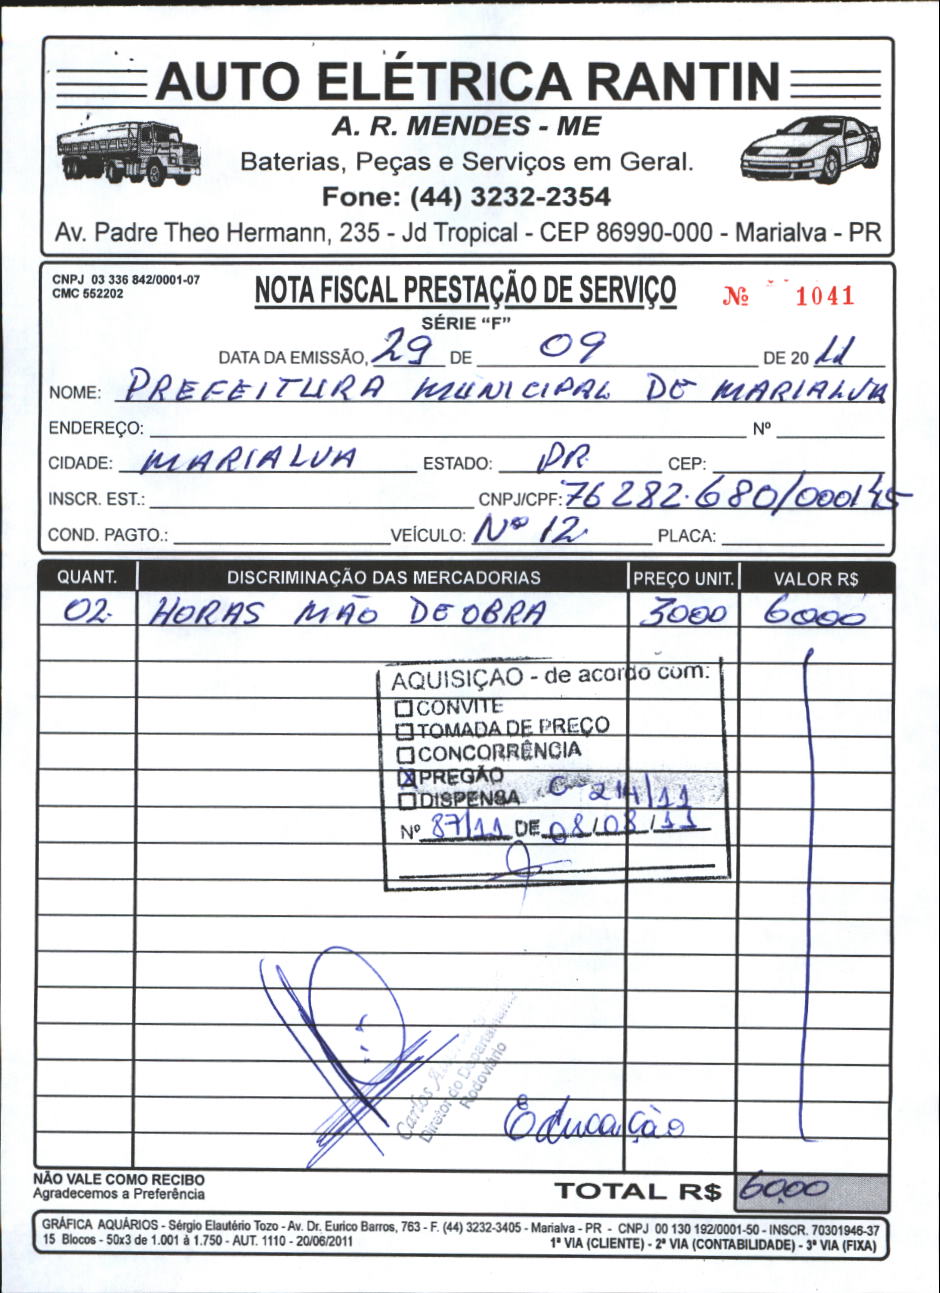 AUTO ELÉTRICA RANTIN
A. R. MENDES - ME
Baterias, Peças e Serviços em Geral.
Fone: (44) 3232-2354
Av. Padre Theo Hermann, 235 - Jd Tropical - CEP 86990-000 - Marialva - PR
CNPJ 03 336 842/0001-07
CMC 552202
NOTA FISCAL PRESTAÇÃO DE SERVIÇO
Nº 1041
SÉRIE “F”
DATA DA EMISSÃO, 29 DE 09 DE 20 11
NOME: PREFEITURA MUNICIPAL DE MARIALVA
ENDEREÇO: Nº
CIDADE: MARIALVA ESTADO: PR CEP:
INSCR. EST.: CNPJ/CPF: 76 282.680/000145
COND. PAGTO.: VEÍCULO: Nº 12 PLACA:
QUANT. DISCRIMINAÇÃO DAS MERCADORIAS PREÇO UNIT. VALOR R$
02 HORAS MÃO DE OBRA 3000 6000
AQUISIÇAO - de acordo com:
CONVITE
TOMADA DE PREÇO
CONCORRÊNCIA
PREGÃO
DISPENSA 214/11
Nº 87/11 DE 08/08/11
Carlos
Diretor do Departamento
Rodoviário
Educação
NÃO VALE COMO RECIBO
Agradecemos a Preferência
TOTAL R$ 6000
GRÁFICA AQUÁRIOS - Sérgio Elautério Tozo - Av. Dr. Eurico Barros, 763 - F. (44) 3232-3405 - Marialva - PR - CNPJ 00 130 192/0001-50 - INSCR. 70301946-37
15 Blocos - 50x3 de 1.001 à 1.750 - AUT. 1110 - 20/06/2011 1ª VIA (CLIENTE) - 2ª VIA (CONTABILIDADE) - 3ª VIA (FIXA)